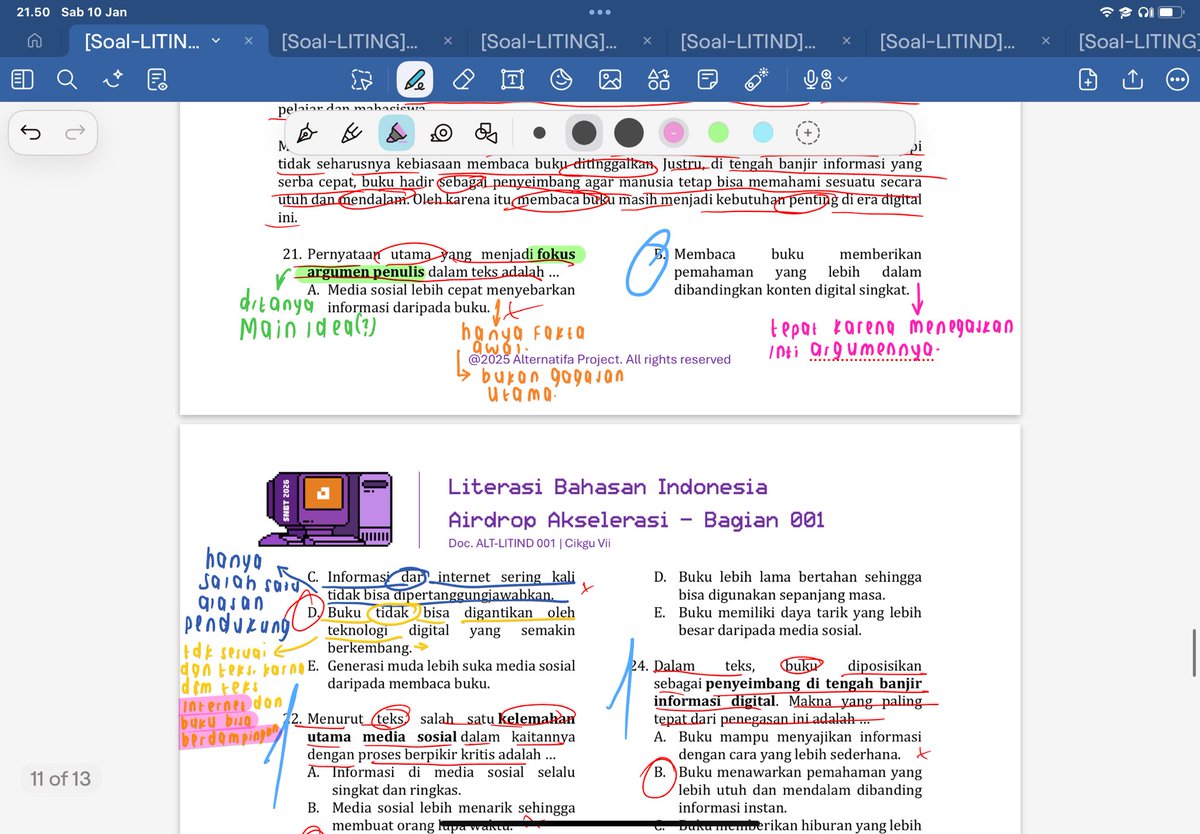 21.50 Sab 10 Jan
[Soal-LITIN...
[Soal-LITING]...
[Soal-LITING]...
[Soal-LITIND]...
[Soal-LITIND]...
[Soal-LITING]
pelajar dan mahasiswa
tidak seharusnya kebiasaan membaca buku ditinggalkan. Justru, di tengah banjir informasi yang
serba cepat, buku hadir sebagai penyeimbang agar manusia tetap bisa memahami sesuatu secara
utuh dan mendalam. Oleh karena itu, membaca buku masih menjadi kebutuhan penting di era digital
ini.
21. Pernyataan utama yang menjadi fokus
argumen penulis dalam teks adalah ...
A. Media sosial lebih cepat menyebarkan
informasi daripada buku.
ditanya
Main idea(?)
hanya fakta
awal.
bukan gagasan
utama.
B. Membaca buku memberikan
pemahaman yang lebih dalam
dibandingkan konten digital singkat.
tepat karena menegaskan
inti argumennya.
@2025 Alternatifa Project. All rights reserved
SNBT 2026
Literasi Bahasan Indonesia
Airdrop Akselerasi - Bagian 001
Doc. ALT-LITIND 001 | Cikgu Vii
hanya
salah satu
alasan
pendukung
C. Informasi dari internet sering kali
tidak bisa dipertanggungjawabkan.
D. Buku tidak bisa digantikan oleh
teknologi digital yang semakin
berkembang.
tdk sesuai
dgn teks, karna
dlm teks
internet dan
buku bisa
berdampingan
E. Generasi muda lebih suka media sosial
daripada membaca buku.
22. Menurut teks, salah satu kelemahan
utama media sosial dalam kaitannya
dengan proses berpikir kritis adalah ...
A. Informasi di media sosial selalu
singkat dan ringkas.
B. Media sosial lebih menarik sehingga
membuat orang lupa waktu.
D. Buku lebih lama bertahan sehingga
bisa digunakan sepanjang masa.
E. Buku memiliki daya tarik yang lebih
besar daripada media sosial.
24. Dalam teks, buku diposisikan
sebagai penyeimbang di tengah banjir
informasi digital. Makna yang paling
tepat dari penegasan ini adalah ...
A. Buku mampu menyajikan informasi
dengan cara yang lebih sederhana.
B. Buku menawarkan pemahaman yang
lebih utuh dan mendalam dibanding
informasi instan.
C. Buku memberikan hiburan yang lebih
11 of 13